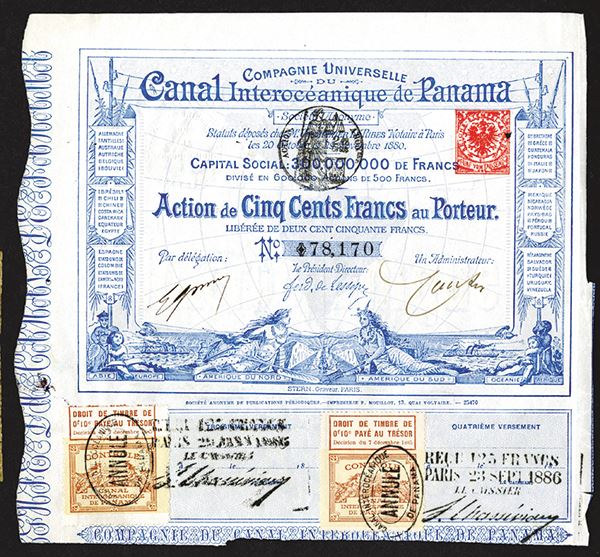 COMPAGNIE UNIVERSELLE
DU
Canal Interocéanique de Panama
Société Anonyme
Statuts déposés chez Notaire à Paris
les 20 1880.
CAPITAL SOCIAL: 300,000,000 DE FRANCS
DIVISÉ EN 600,000 ACTIONS DE 500 FRANCS.
Action de Cinq Cents Francs au Porteur.
LIBÉRÉE DE DEUX CENT CINQUANTE FRANCS.
N° 78,170
Par délégation:
Le Président-Directeur:
Un Administrateur:
Ferd. de Lesseps
ASIE
EUROPE
AMÉRIQUE DU NORD
AMÉRIQUE DU SUD
OCÉANIE
AFRIQUE
STERN, Graveur, PARIS.
ALLEMAGNE
ANTILLES
AUSTRALIE
AUTRICHE
BELGIQUE
BRÉSIL
CHILI
CHINE
COSTA RICA
DANEMARK
ÉQUATEUR
ÉGYPTE
ESPAGNE
FRANCE
GRÈCE
GUATEMALA
HONDURAS
ITALIE
JAPON
MEXIQUE
NICARAGUA
NORWÈGE
PAYS-BAS
PÉROU
PORTUGAL
RUSSIE
SUÈDE
TURQUIE
URUGUAY
VENEZUELA
SOCIÉTÉ ANONYME DE PUBLICATIONS PÉRIODIQUES.—IMPRIMERIE P. MOUILLOT, 13, QUAI VOLTAIRE. — 25470
TROISIÈME VERSEMENT
QUATRIÈME VERSEMENT
DROIT DE TIMBRE DE
0f 10c PAYÉ AU TRÉSOR
Décision du 7 décembre
CANAL
INTEROCÉANIQUE
DE PANAMA
ANNULÉ
PARIS 1886
LE CAISSIER
DROIT DE TIMBRE DE
0f 10c PAYÉ AU TRÉSOR
Décision du 7 décembre
CANAL
INTEROCÉANIQUE
DE PANAMA
ANNULÉ
REÇU 125 FRANCS
PARIS 23 SEPT 1886
LE CAISSIER
COMPAGNIE DU CANAL INTEROCÉANIQUE DE PANAMA